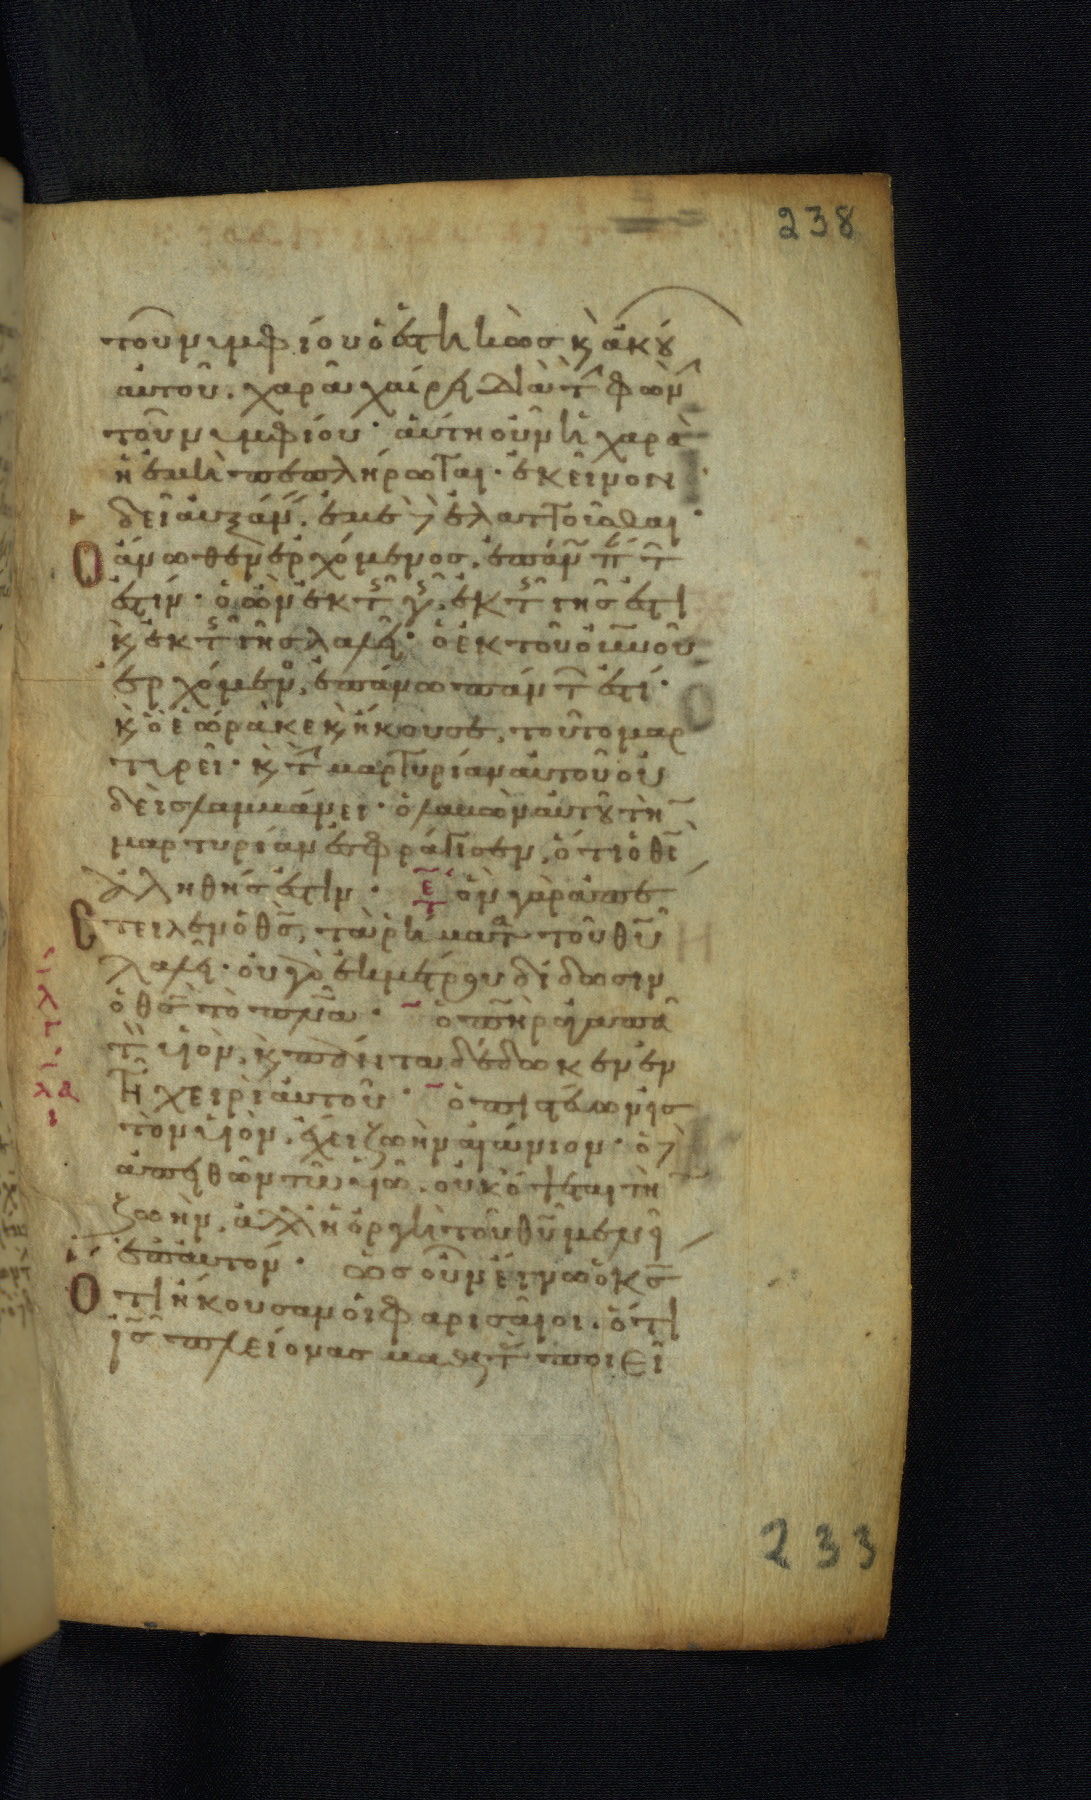 238
τοῦ νυμφίου ὁ ἑστηκὼς κ̀ ἀκού
αὐτοῦ. χαρᾶ χαίρει διὰ τ̀ φων̂
τοῦ νυμφίου· αὕτη οὖν ἡ χαρὰ
ἡ ἐμὴ πεπλήρωται· ἐκεῖνον
δεῖ αὐξάν. ἐμὲ δ̀ ἐλαττοῦσθαι·
Ο ἄνωθεν ἐρχόμενος. ἐπάν π τ̂
ἐστίν· ὁ ὢν ἐκ τ̂ γ̂, ἐκ τ̂ γῆς ἐστὶ
κ̀ ἐκ τ̂ γῆς λαλεῖ· ὁ ἐκ τοῦ οὐνοῦ
ἐρχόμεν, ἐπάνω πάντ ἐστί·
κ̀ ὃ ἑώρακε κ̀ ἤκουσε, τοῦτο μαρ
τυρεῖ· κ̀ τ̀ μαρτυρίαν αὐτοῦ οὐ
δεὶς λαμβάνει· ὁ λαβὼν αὐτοῦ τὴ̄
μαρτυρίαν ἐσφράγισεν, ὅτι ὁ θς̄
ἀληθής ἐστιν· ὃν γὰρ ἀπέ
Ϲτειλεν ὁ θς̄, τὰ ῥήματ τοῦ θῡ
λαλεῖ· οὐ γὰρ ἐκ μέτρου δίδωσιν
ὁ θς̄ τὸ πνᾱ· ὁ πηρ̄ ἀγαπᾶ
τ̀ υἱόν, κ̀ πάντα δέδωκεν ἐν
τῆ χειρὶ αὐτοῦ· ὁ πιστεύων εἰς
τὸν υἱόν, ἔχει ζωὴν αἰώνιον· ὁ δ̀
ἀπειθῶν τῶ υἱῶ. οὐκ ὄψεται τὴ̄
ζωὴν. ἀλλ' ἡ ὀργὴ τοῦ θῡ μένει
ἐπ' αὐτόν· ὡς οὖν ἔγνω ὁ κς̄
Οτι ἤκουσαν οἱ φαρισαῖοι. ὅτι
ις̄ πλείονας μαθητ̀ ποιεῖ
233